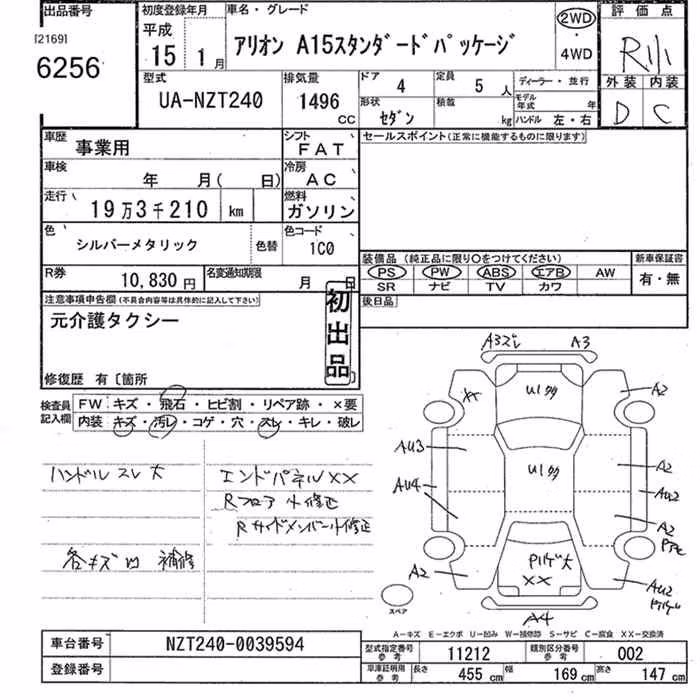 出品番号
[2169]
6256
初度登録年月
平成
15 1月
車名・グレード
アリオン A15スタンダードパッケージ
2WD
・
4WD
評価点
R
外装 内装
D C
型式
UA-NZT240
排気量
1496
CC
ドア
4
定員
5人
形状
セダン
積載
kg
ディーラー・並行
モデル年式 年
ハンドル 左・右
車歴
事業用
シフト
FAT
セールスポイント(正常に機能するものに限ります)
車検
年 月( 日)
冷房
AC
走行
19万3千210 km
燃料
ガソリン
色
シルバーメタリック
色替
色コード
1C0
装備品(純正品に限り○をつけてください)
PS PW ABS エアB AW
SR ナビ TV カワ
新車保証書
有・無
R券
10,830円
名変通知期限
月 日
後日品
注意事項申告欄(不具合内容等は具体的に記入して下さい)
元介護タクシー
初出品
修復歴 有〔箇所
検査員記入欄
FW キズ・飛石・ヒビ割・リペア跡・×要
内装 キズ・汚レ・コゲ・穴・スレ・キレ・破レ
ハンドル スレ 大
エンドパネルXX
Rフロア 小修正
Rサイドメンバー小修正
各キズ凹 補修
A3 A3
XX U1多 A2
AU3
U1多 A2
AU4 AU2
A2
A2 XX AU2
A4
スペア
A-キズ E-エクボ U-凹み W-補修跡 S-サビ C-腐食 XX-交換済
車台番号
NZT240-0039594
登録番号
型式指定番号
参考
11212
類別区分番号
参考
002
車庫証明用
参考
長さ
455cm
幅
169cm
高さ
147cm